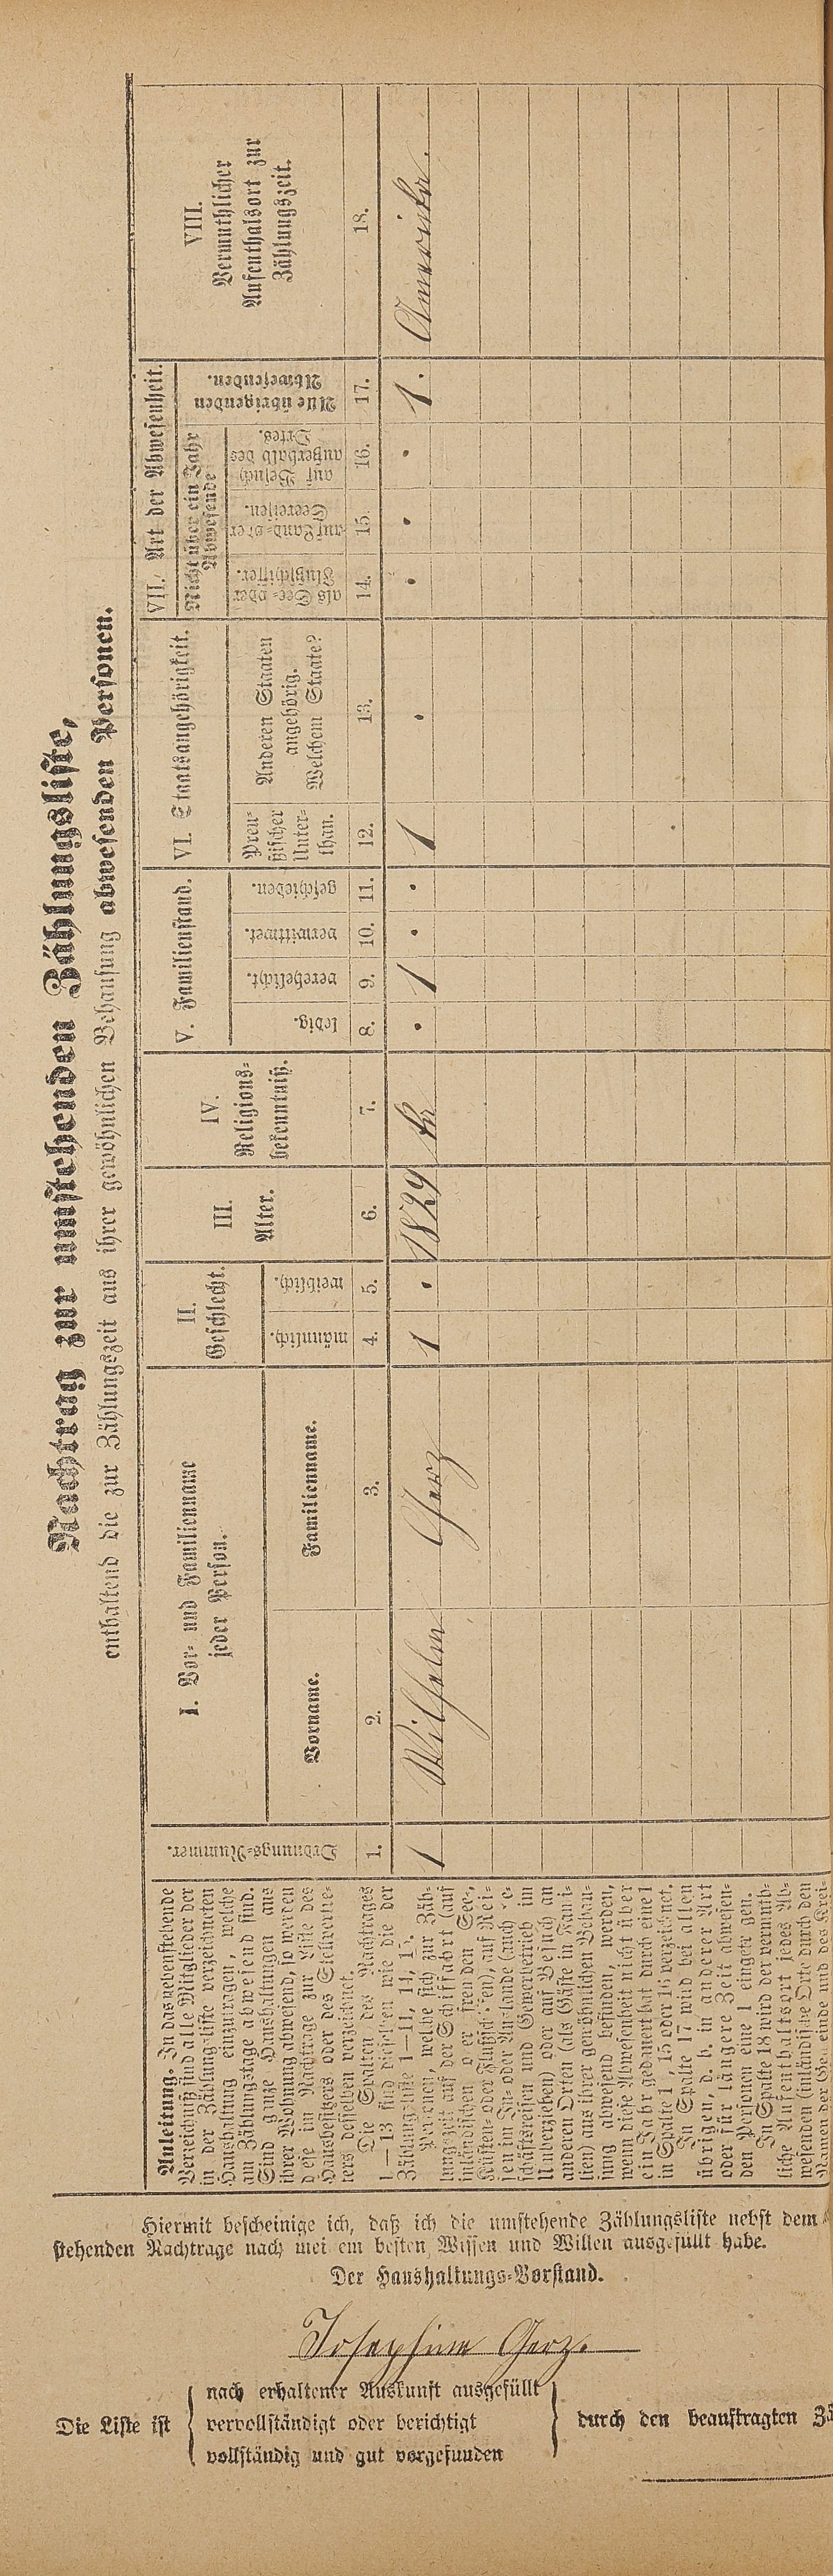 Nachtrag zur umstehenden Zählungsliste,
enthaltend die zur Zählungszeit aus ihrer gewöhnlichen Behausung abwesenden Personen.
Anleitung. In das nebenstehende
Verzeichniß sind alle Mitglieder der
in der Zählungsliste verzeichneten
Haushaltung einzutragen, welche
am Zählungstage abwesend sind.
Sind ganze Haushaltungen aus
ihrer Wohnung abwesend, so werden
diese im Nachtrage zur Liste des
Hausbesitzers oder des Stellvertre-
ters desselben verzeichnet.
Die Spalten des Nachtrages
1—13 sind dieselben wie die der
Zählungsliste 1—11, 14, 15.
Personen, welche sich zur Zäh-
lungszeit auf der Schifffahrt (auf
inländischen oder fremden See-,
Küsten- oder Flußschiffen), auf Rei-
sen im In- oder Auslande (auch Ge-
schäftsreisen und Gewerbetrieb im
Umherziehen) oder auf Besuch an
anderen Orten (als Gäste in Fami-
lien) aus ihrer gewöhnlichen Behau-
sung abwesend befinden, werden,
wenn diese Abwesenheit nicht über
ein Jahr gedauert hat durch eine 1
in Spalte 14, 15 oder 16 verzeichnet.
In Spalte 17 wird bei allen
übrigen, d. h. in anderer Art
oder für längere Zeit abwesen-
den Personen eine 1 eingetragen.
In Spalte 18 wird der vermuth-
liche Aufenthaltsort jedes Ab-
wesenden (inländische Orte durch den
Namen der Gemeinde und des Krei-
Ordnungs-Nummer.
I. Vor- und Familienname
jeder Person.
Vorname.
Familienname.
II.
Geschlecht.
männlich.
weiblich.
III.
Alter.
IV.
Religions-
bekenntniß.
V. Familienstand.
ledig.
verehelicht.
verwittwet.
geschieden.
VI. Staatsangehörigkeit.
Preu-
ßischer
Unter-
than.
Anderen Staaten
angehörig.
Welchem Staate?
VII. Art der Abwesenheit.
Nicht über ein Jahr
Abwesende
als See- oder
Flußschiffer.
auf Land- oder
Seereisen.
auf Besuch
außerhalb des
Ortes.
Alle übrigen
Abwesenden.
VIII.
Vermuthlicher
Aufenthalsort zur
Zählungszeit.
1. 2. 3. 4. 5. 6. 7. 8. 9. 10. 11. 12. 13. 14. 15. 16. 17. 18.
1 Wilhelm Gerz 1 . 1829 . 1 . . 1 . . . . 1. Amerika.
Hiermit bescheinige ich, daß ich die umstehende Zählungsliste nebst dem
stehenden Nachtrage nach meinem besten Wissen und Willen ausgefüllt habe.
Der Haushaltungs-Vorstand.
Josephine Gerz.
Die Liste ist
nach erhaltener Auskunft ausgefüllt
vervollständigt oder berichtigt
vollständig und gut vorgefunden
durch den beauftragten Zä